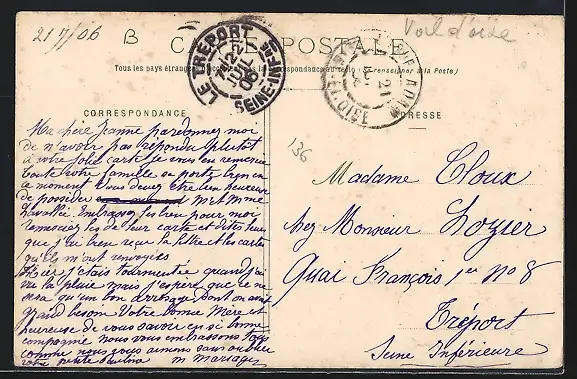 21 7/06 B CARTE POSTALE Val d'oise
LE TREPORT
SEINE-INFRE
CORRESPONDANCE
ADRESSE
136
Ma chère Jeanne pardonnez moi
de n'avoir pas répondu plutôt
à votre jolie carte je vous en remercie
toute votre famille se porte bien en
ce moment vous devez être bien heureux
de posséder Mr et Mme
Lavallée. Embrassez les bien pour moi
remerciez les de leur carte et dites leur
que j'ai bien reçu la lettre et les cartes
qu'ils m'ont renvoyées
Hier j'étais tourmentée quand j'ai
vu la pluie mais j'espère que ce ne
sera qu'un bon arrosage dont on avait
grand besoin Votre bonne Mère est
heureuse de vous savoir en si bonne
compagnie nous vous embrassons tous
comme nous vous aimons sans oublier
votre petite
Madame Cloux
chez Monsieur Lozier
Quai François 1er No 8
Tréport
Seine Inférieure